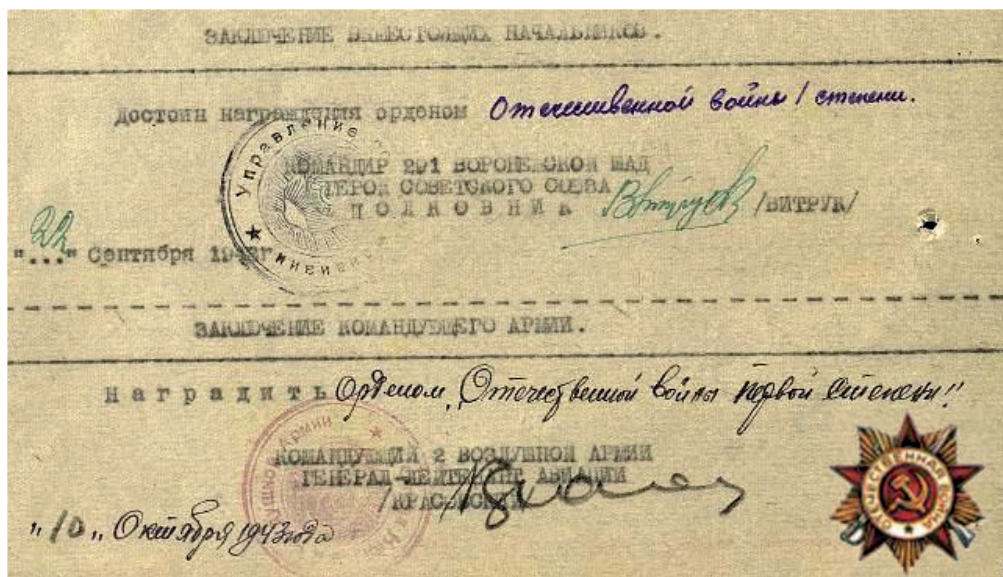 ЗАКЛЮЧЕНИЕ ВЫШЕСТОЯЩИХ НАЧАЛЬНИКОВ.
Достоин награждения орденом Отечественной войны 1 степени.
Управление
КОМАНДИР 291 ВОРОНЕЖСКОЙ ШАД
ГЕРОЙ СОВЕТСКОГО СОЮЗА
ПОЛКОВНИК Витрук /ВИТРУК/
"22" Сентября 1943г.
ЗАКЛЮЧЕНИЕ КОМАНДУЮЩЕГО АРМИИ.
Наградить Орденом "Отечественной войны первой степени"
Армии
КОМАНДУЮЩИЙ 2 ВОЗДУШНОЙ АРМИИ
ГЕНЕРАЛ-ЛЕЙТЕНАНТ АВИАЦИИ
/КРАСОВСКИЙ/
"10" Октября 1943 года
ОТЕЧЕСТВЕННАЯ ВОЙНА